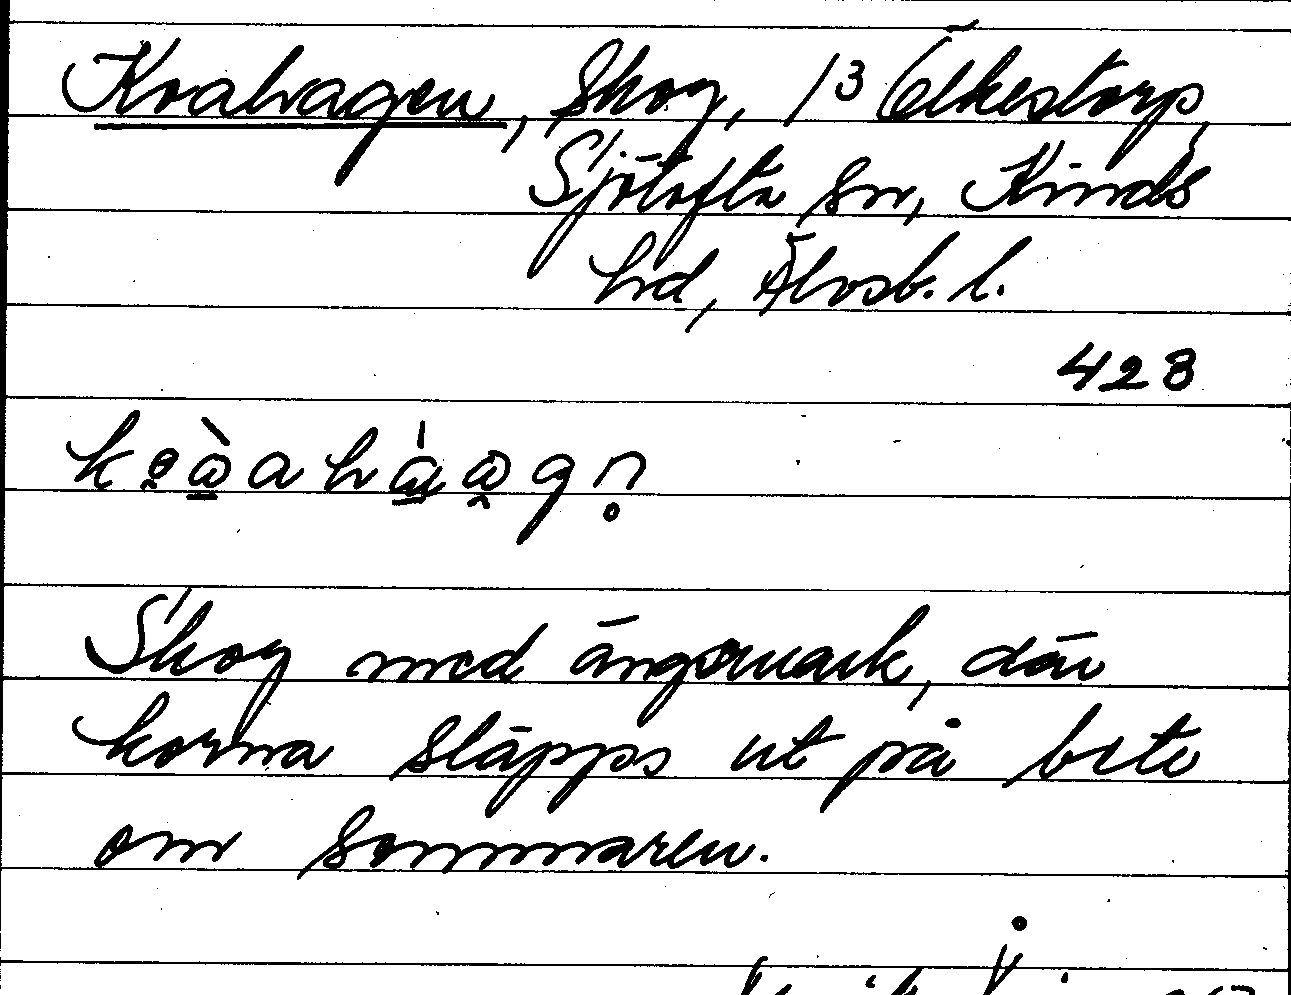 Koahagen, Skog, 1/3 Ölkestorp,
Sjötofta sn, Kinds
hd, Älvsb. l.
423
Skog med ängsmark, där
korna släpps ut på bete
om sommaren.